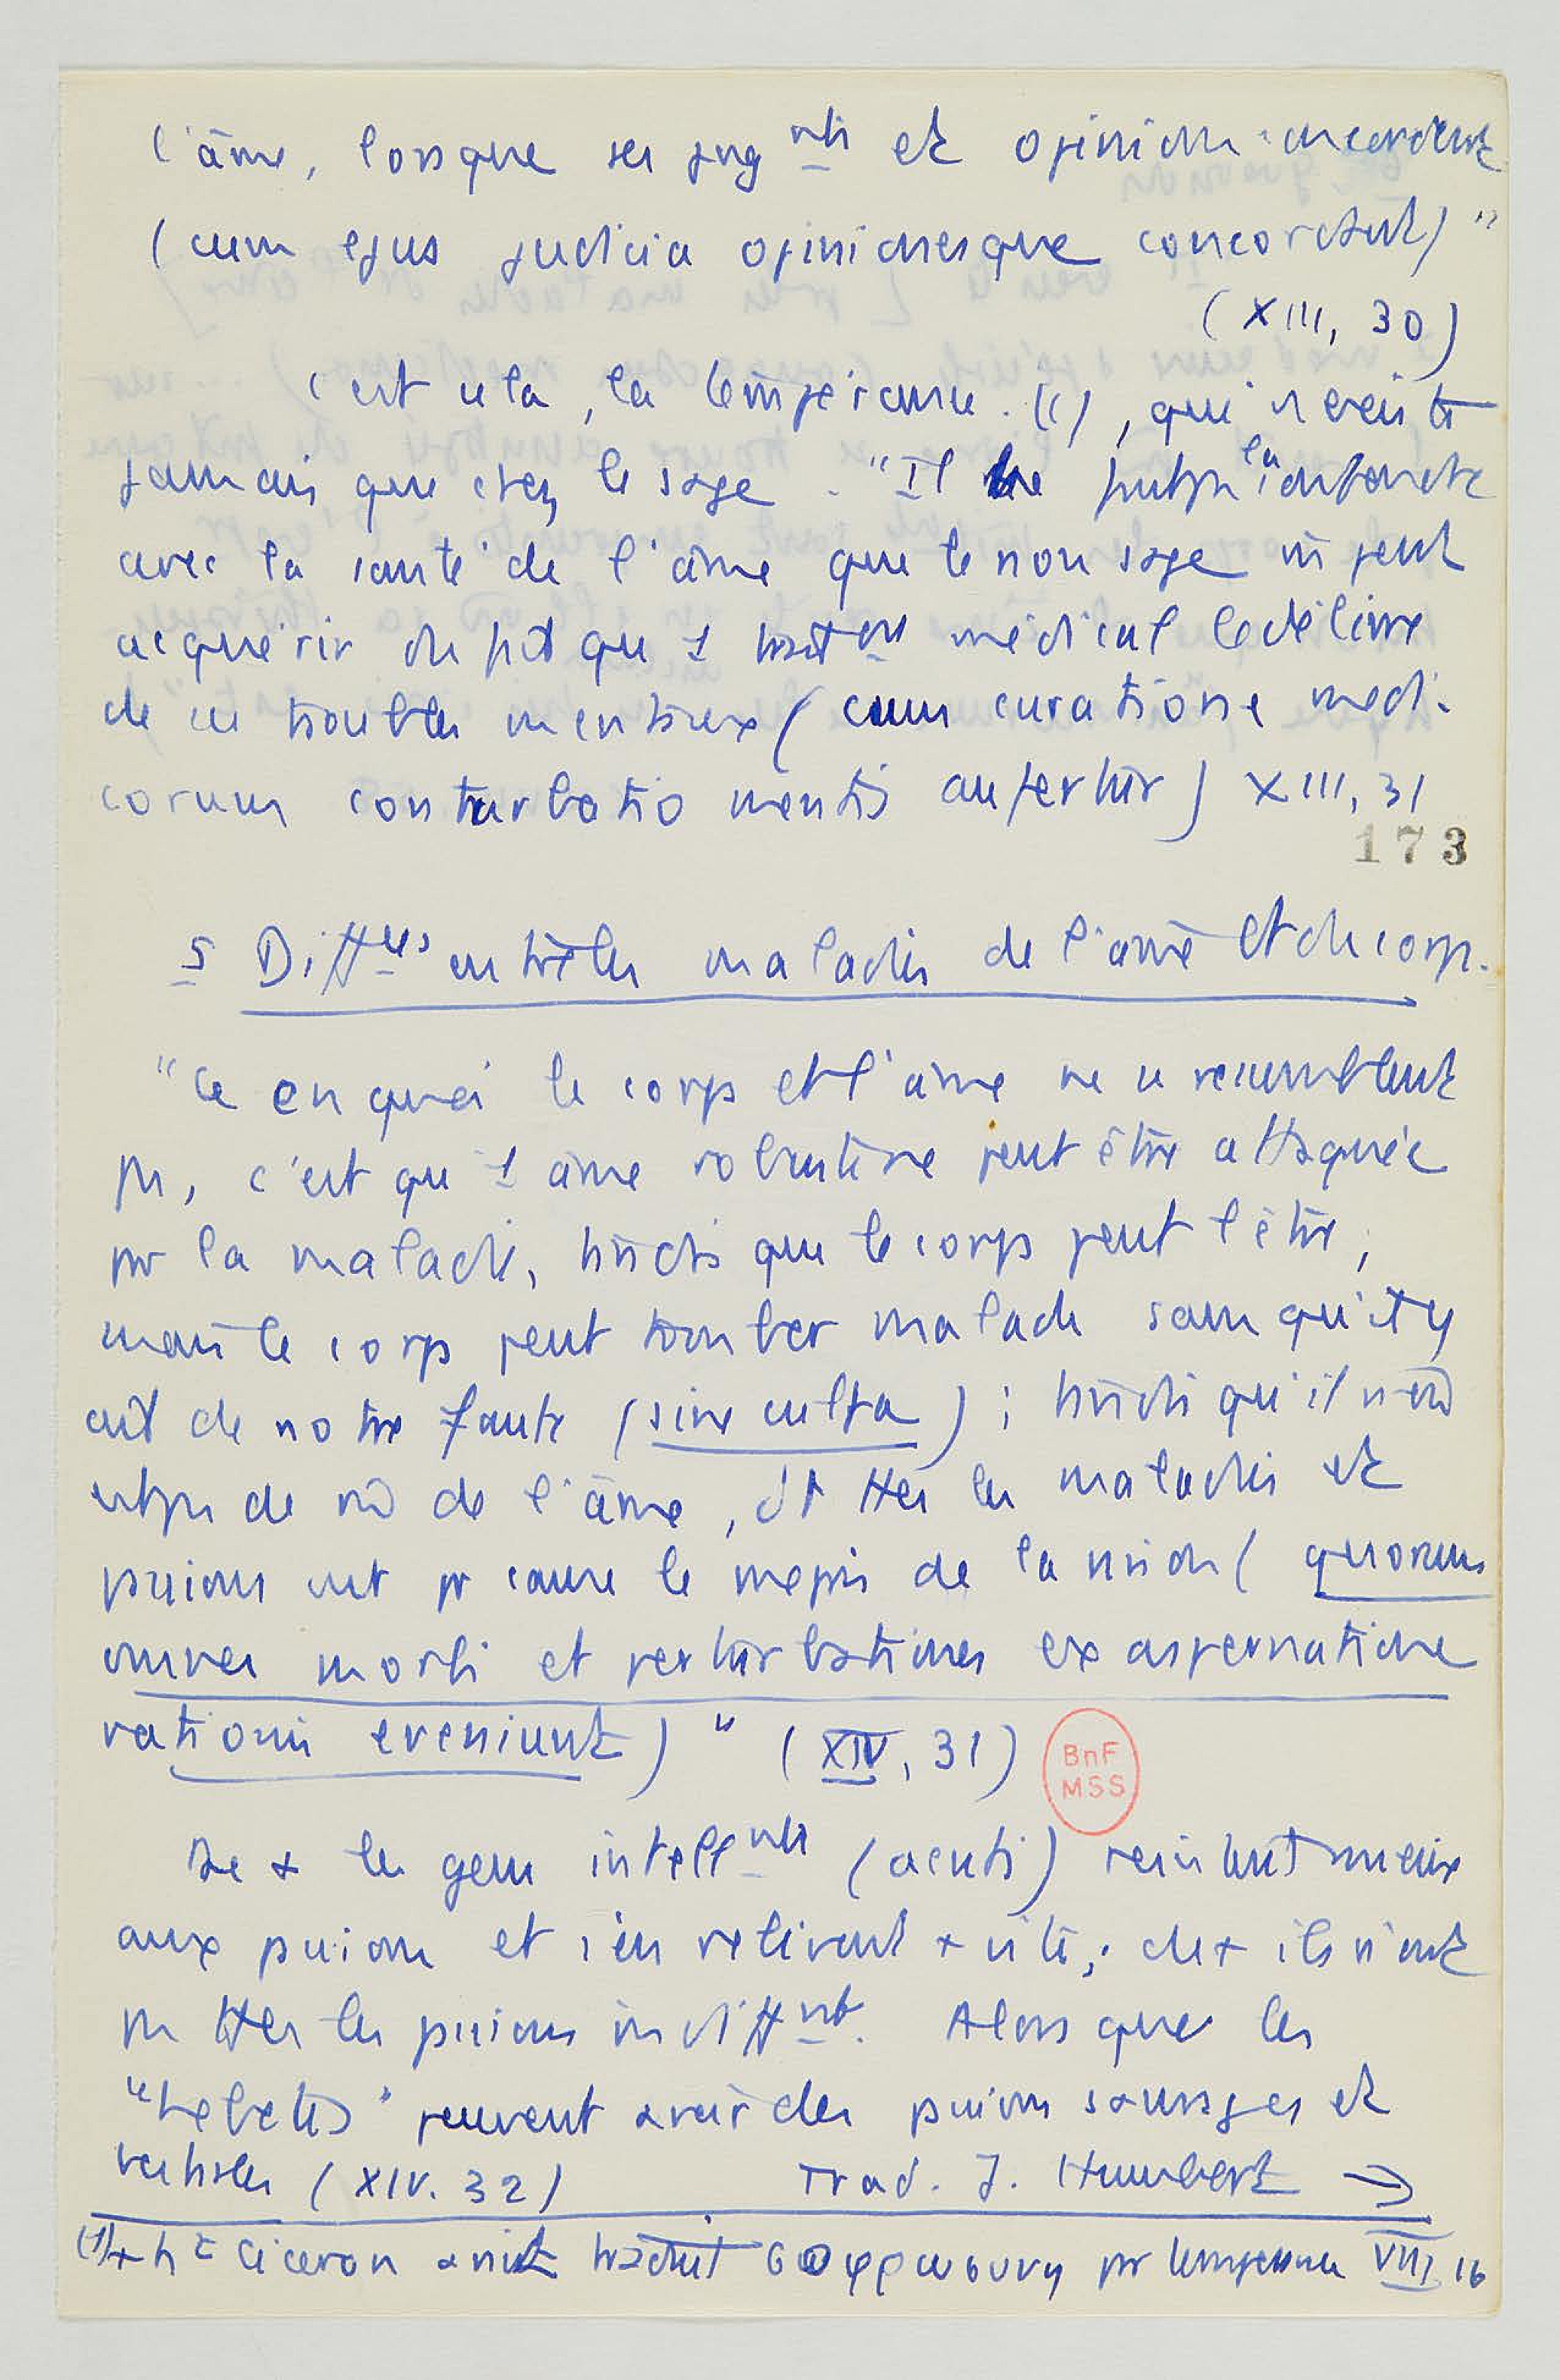 l'âme, lorsque ses jugnts et opinions concordent
(cum ejus judicia opinionesque concordant)"
(XIII, 30)
c'est cela, la tempérance. (1), qui n'existe
jamais que chez le sage. "Il ne faut pas la confondre
avec la santé de l'âme que le non sage m̂ peut
acquérir du fait qu'1 traitent médical le délivre
de ces troubles mentaux (cum curatione medi-
corum conturbatio mentis aufertur) XIII, 31
173
5 Diffces entre les maladies de l'âme et du corps.
"Ce en quoi le corps et l'âme ne se ressemblent
pas, c'est qu'1 âme robuste ne peut être attaquée
par la maladie, tandis que le corps peut l'être,
mais le corps peut tomber malade sans qu'il y
ait de notre faute (sine culpa) ; tandis qu'il n'en
est pas de m̂ de l'âme, dt ttes les maladies et
passions ont pr cause le mépris de la raison (quorum
omnes morbi et perturbationes ex aspernatione
rationis eveniunt)" (XIV, 31)
BnF
MSS
De + les gens intellnts (acuti) résistent mieux
aux passions et s'en retirent + vite; de + ils n'ont
pas ttes les passions indifft. Alors que les
"hebetes" peuvent avoir des passions sauvages et
bestiales (XIV. 32) Trad. J. Humbert →
(1) + ht Cicéron avait traduit σωφροσυνη par temperantia VIII, 16